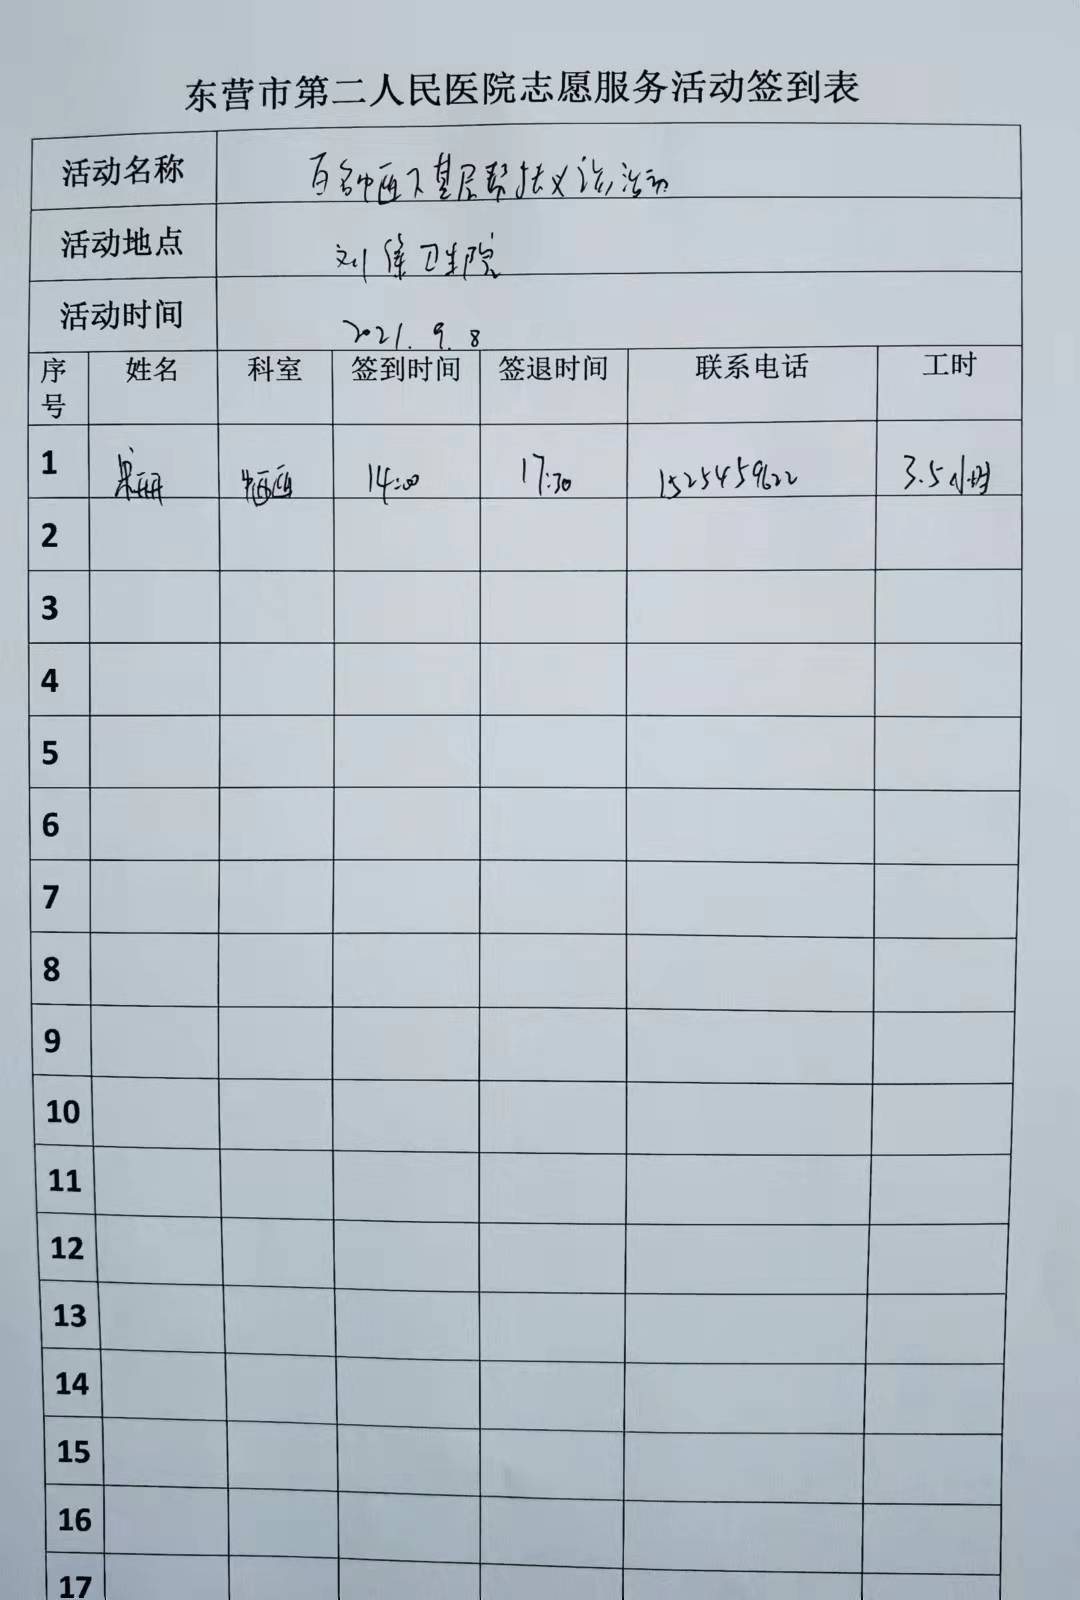 东营市第二人民医院志愿服务活动签到表
活动名称 百名中医下基层帮扶义诊活动
活动地点 刘集卫生院
活动时间 2021.9.8
序号 姓名 科室 签到时间 签退时间 联系电话 工时
1 14:00 17:30 15254459622 3.5小时
2
3
4
5
6
7
8
9
10
11
12
13
14
15
16
17